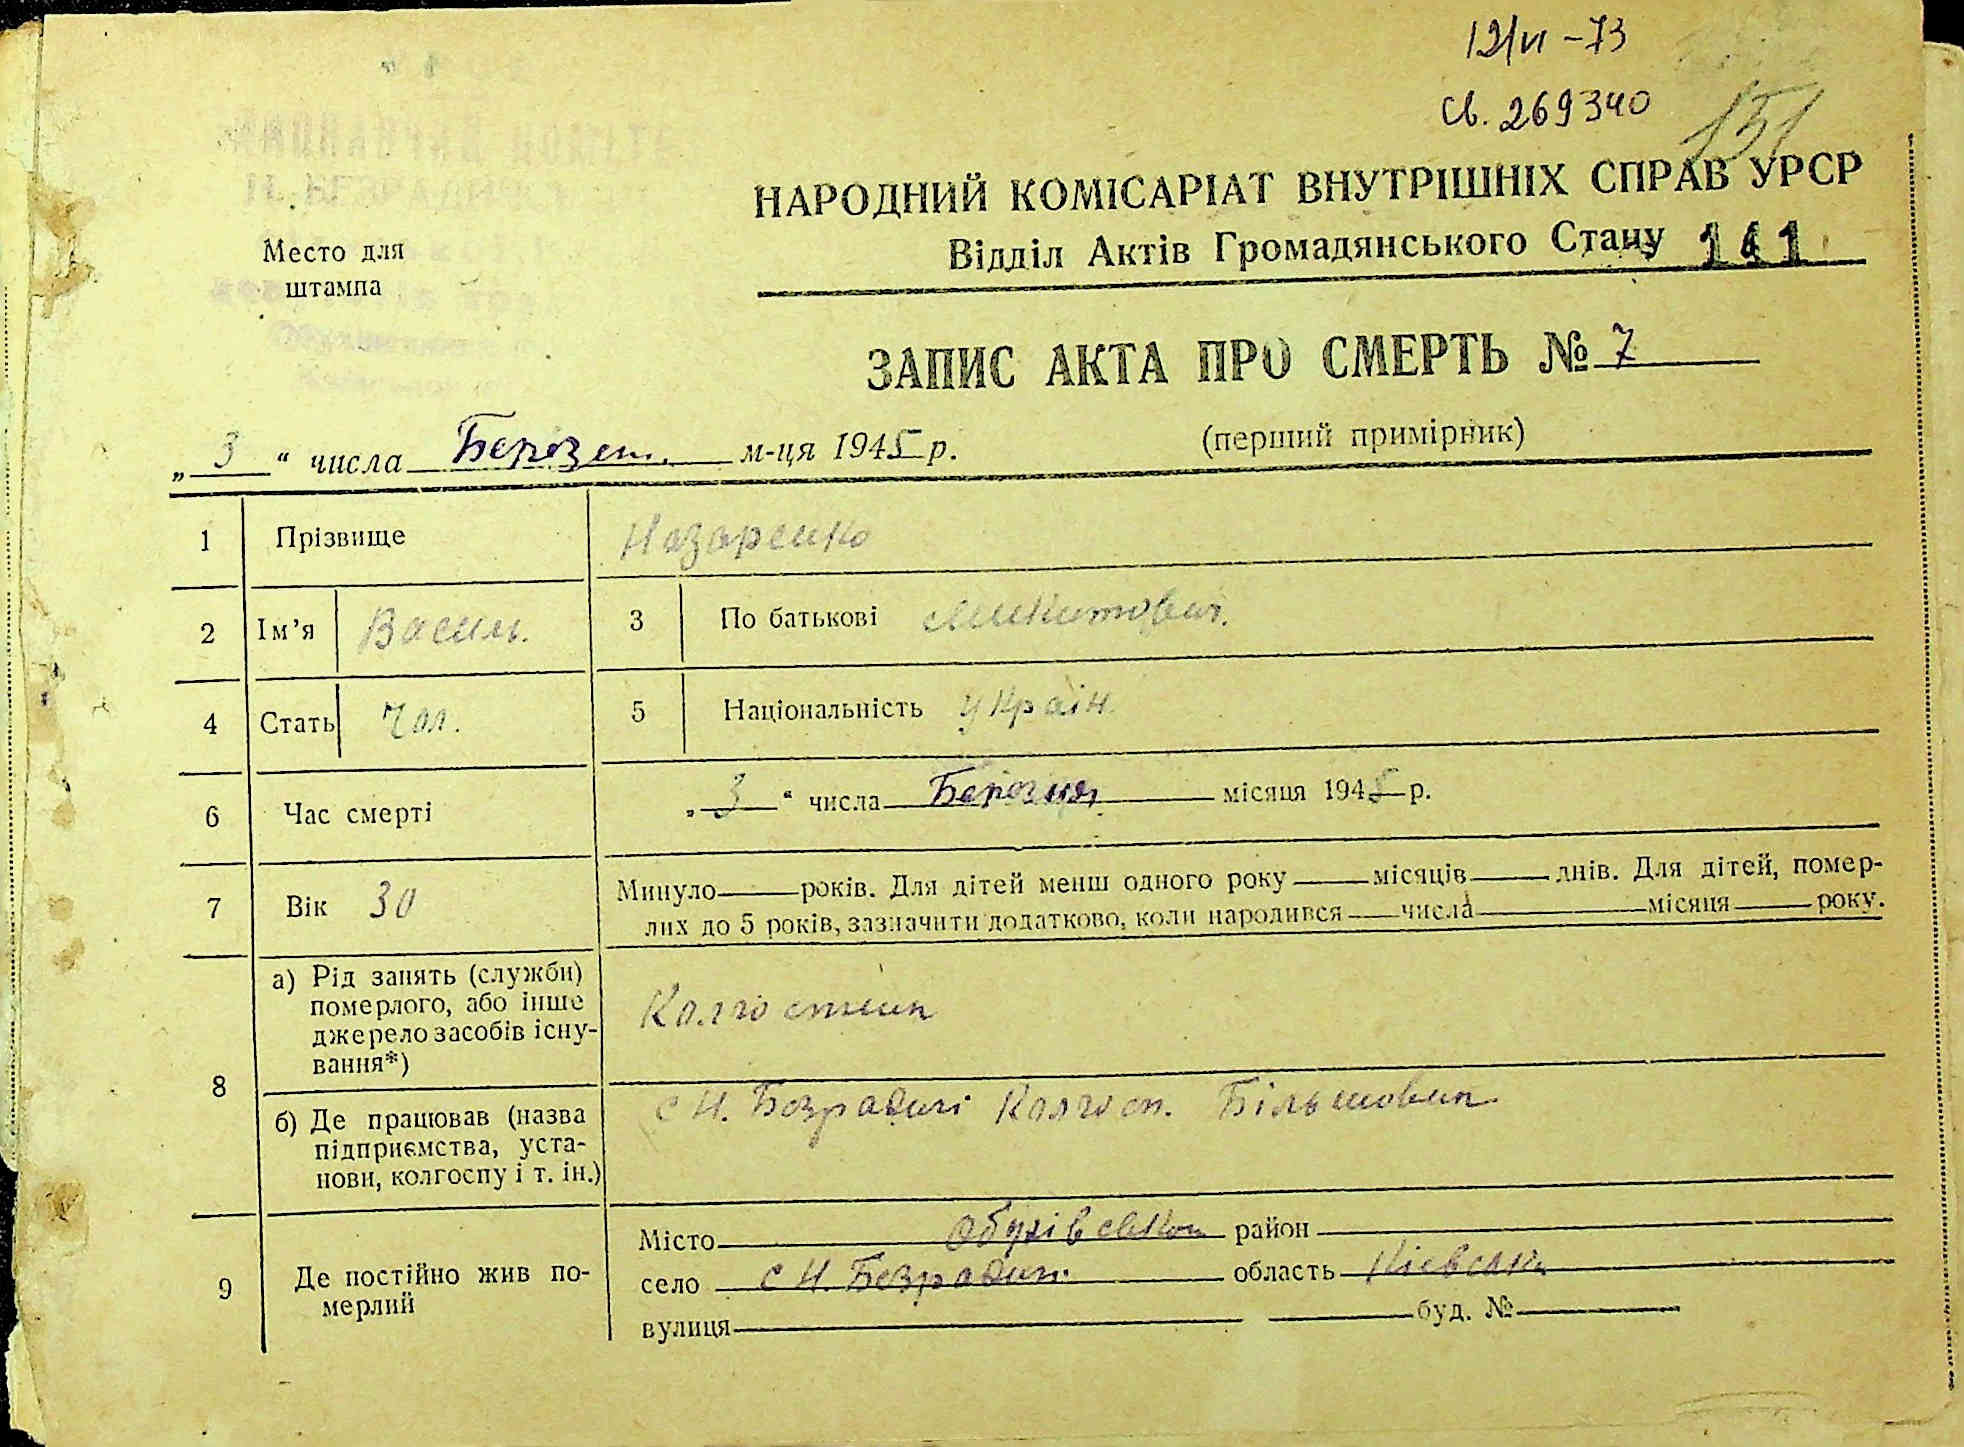 12/VI – 73
Св. 269340
151
НАРОДНИЙ КОМІСАРІАТ ВНУТРІШНІХ СПРАВ УРСР
Відділ Актів Громадянського Стану 141
Место для
штампа
ЗАПИС АКТА ПРО СМЕРТЬ № 7
„ 3 “ числа Березень м-ця 1945 р. (перший примірник)
1 Прізвище Назаренко
2 Ім’я Василь. 3 По батькові Микитович.
4 Стать Чол. 5 Національність україн.
6 Час смерті „ 3 “ числа Березня місяця 1945 р.
7 Вік 30 Минуло років. Для дітей менш одного року місяців днів. Для дітей, помер-
лих до 5 років, зазначити додатково, коли народився числа місяця року.
8 а) Рід занять (служби)
померлого, або інше
джерело засобів існу-
вання*)
Колгоспник
б) Де працював (назва
підприємства, уста-
нови, колгоспу і т. ін.)
с Н. Безрадичі Колгосп. Більшовик
9 Де постійно жив по-
мерлий
Місто Обухівськ район
село с Н. Безрадичі область Київськ
вулиця буд. №